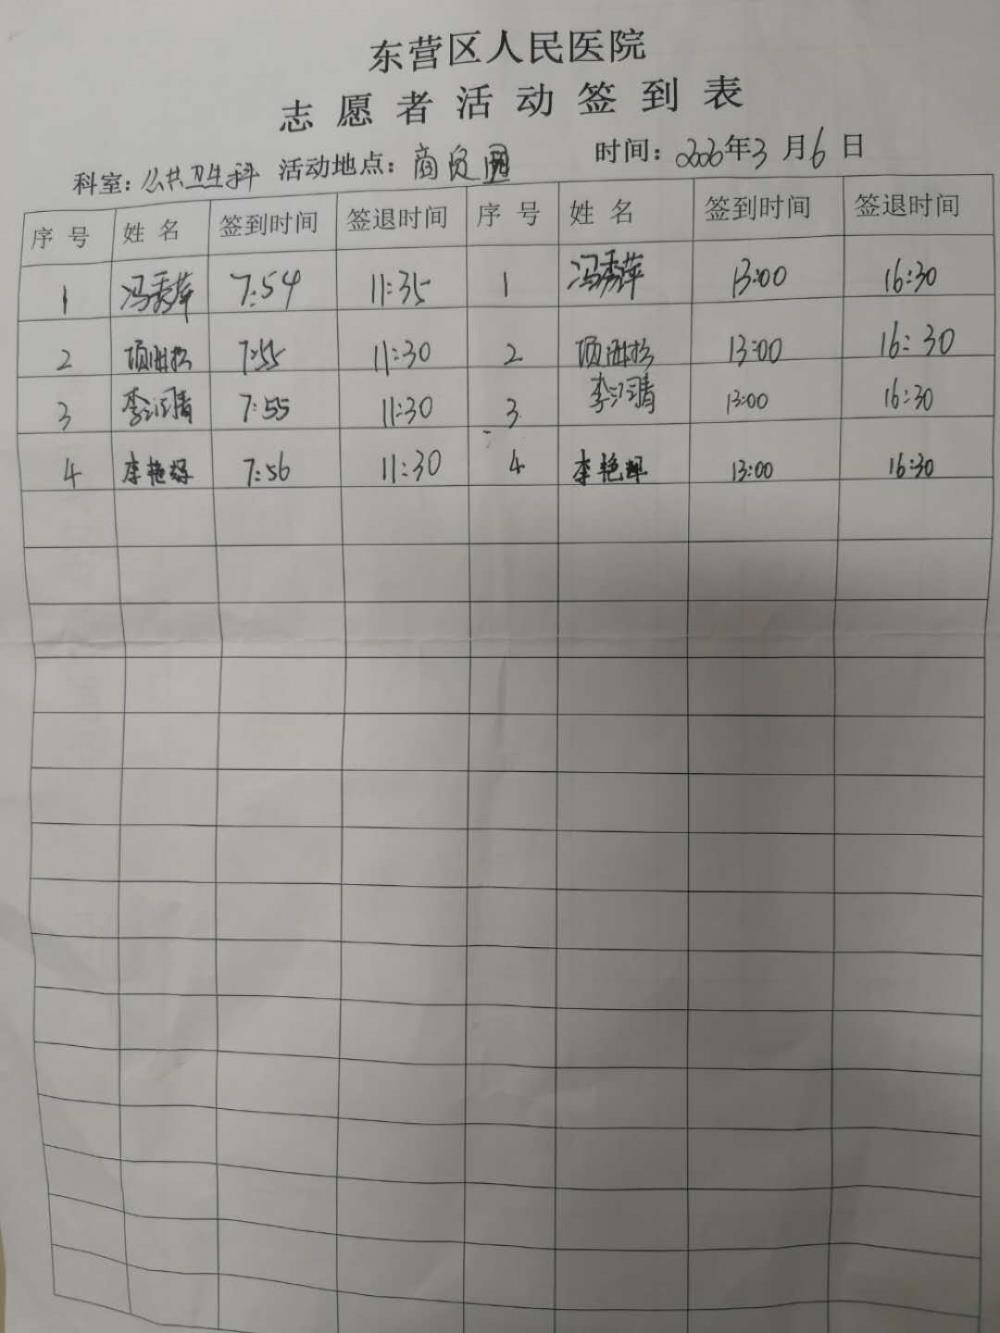 东营区人民医院
志愿者活动签到表
科室：公共卫生科 活动地点：商贸园 时间：2026年3月6日
序号 姓名 签到时间 签退时间 序号 姓名 签到时间 签退时间
1 冯秀萍 7:54 11:35 1 冯秀萍 13:00 16:30
2 7:55 11:30 2 13:00 16:30
3 李汶清 7:55 11:30 3 李汶清 13:00 16:30
4 李艳辉 7:56 11:30 4 李艳辉 13:00 16:30